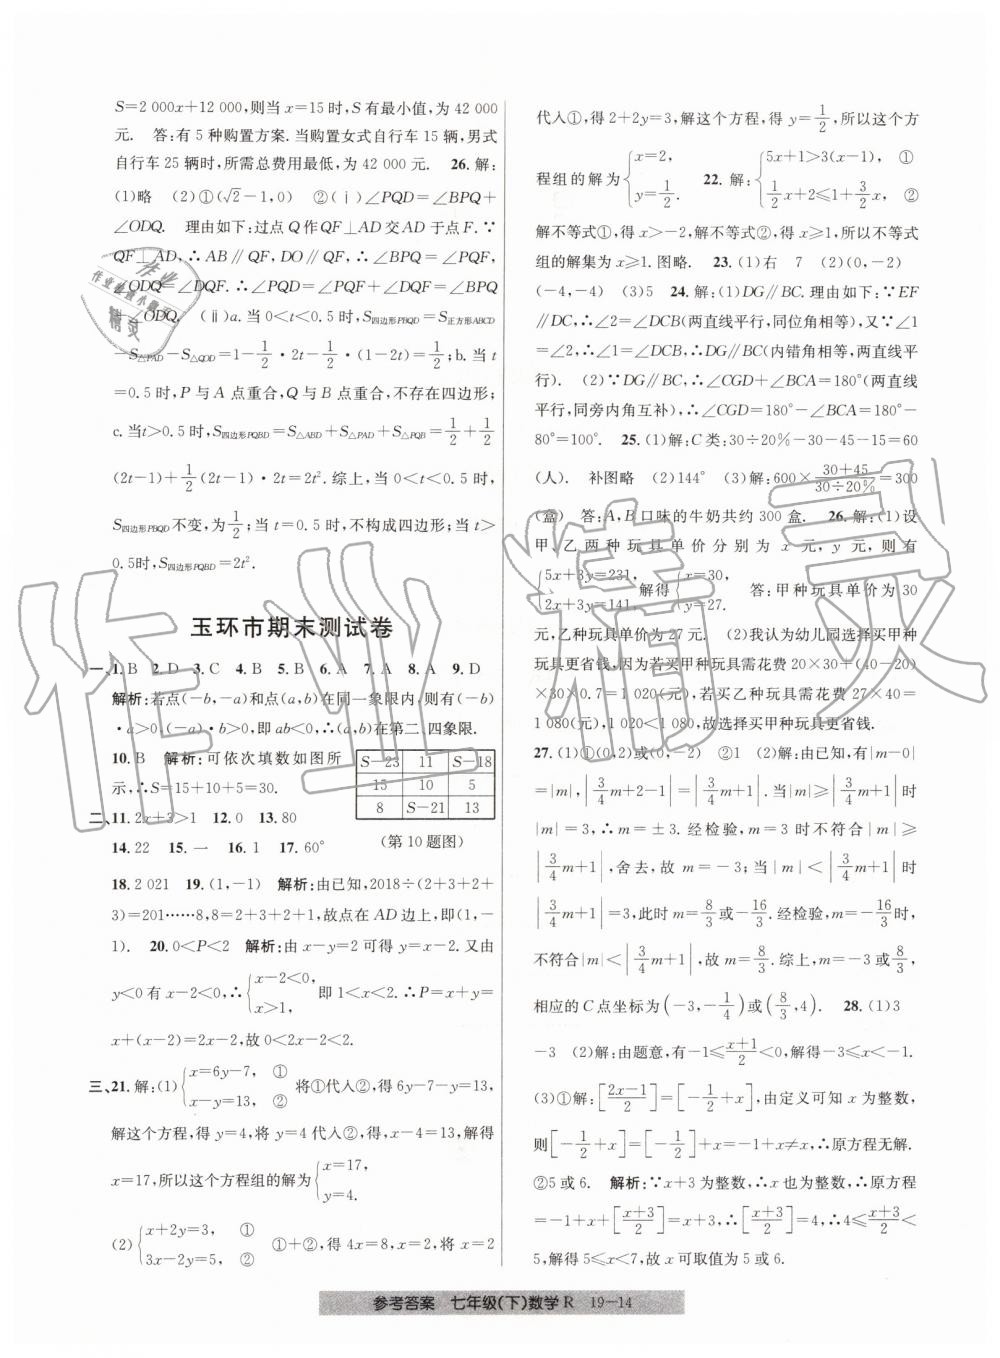 S=2 000x+12 000,则当 x=15时,S有最小值,为 42 000
元. 答:有 5 种购置方案.当购置女式自行车 15 辆,男式
自行车 25 辆时,所需总费用最低,为 42 000 元. 26.解:
(1)略 (2)①(√2-1,0) ②(ⅰ)∠PQD=∠BPQ+
∠ODQ. 理由如下:过点 Q 作 QF⊥AD 交 AD 于点 F.∵
QF⊥AD,∴AB∥QF,DO∥QF,∴∠BPQ=∠PQF,
∠DQF=∠ODQ,∴∠PQD=∠PQF+∠DQF=∠BPQ
+∠ODQ. (ⅱ)a.当 0<t<0.5 时,S四边形PBQD=S正方形ABCD
-S△PAD-S△QOD=1-1/2·2t-1/2(1-2t)=1/2;b.当 t
=0.5 时,P 与 A 点重合,Q 与 O 点重合,不存在四边形;
c.当t>0.5 时,S四边形PQBD=S△ABD+S△PAD+S△PQB=1/2+1/2
(2t-1)+1/2(2t-1)·2t=2t².综上,当 0<t<0.5 时,
S四边形PBQD不变,为1/2;当 t=0.5 时,不构成四边形;当 t>
0.5时,S四边形PQBD=2t².
玉环市期末测试卷
一、1.B 2.D 3.C 4.B 5.B 6.A 7.A 8.A 9.D
解析:若点(-b,-a)和点(a,b)在同一象限内,则有(-b)
·a>0,(-a)·b>0,即 ab<0,∴在第二、四象限.
10.B 解析:可依次填数如图所
示,∴S=15+10+5=30.
S-23 11 S-18
15 10 5
8 S-21 13
(第 10 题图)
二、11.2x+3>1 12.0 13.80
14.22 15.一 16.1 17.60°
18.2 021 19.(1,-1) 解析:由已知,2018÷(2+3+2+
3)=201……8,8=2+3+2+1,故点在 AD 边上,即(1,-
1). 20.0<P<2 解析:由 x-y=2 可得 y=x-2.又由
y<0 有 x-2<0,∴{x-2<0, x>1, 即 1<x<2.∴P=x+y=
x+(x-2)=2x-2,故 0<2x-2<2.
三、21.解:(1){x=6y-7, ① x-y=13, ② 将①代入②,得 6y-7-y=13,
解这个方程,得 y=4,将 y=4 代入②,得 x-4=13,解得
x=17,所以这个方程组的解为{x=17, y=4.
(2){x+2y=3, ① 3x-2y=5, ② ①+②,得 4x=8,x=2,将 x=2
代入①,得 2+2y=3,解这个方程,得 y=1/2,所以这个方
程组的解为{x=2, y=1/2. 22.解:{5x+1>3(x-1), ① 1/2x+2≤1+3/2x, ②
解不等式①,得 x>-2,解不等式②,得 x≥1.所以不等式
组的解集为 x≥1.图略. 23.(1)右 7 (2)(0,-2)
(-4,-4) (3)5 24.解:(1)DG∥BC.理由如下:∵EF
∥DC,∴∠2=∠DCB(两直线平行,同位角相等),又∵∠1
=∠2,∴∠1=∠DCB,∴DG∥BC(内错角相等,两直线平
行). (2)∵DG∥BC,∴∠CGD+∠BCA=180°(两直线
平行,同旁内角互补),∴∠CGD=180°-∠BCA=180°-
80°=100°. 25.(1)解:C 类:30÷20%-30-45-15=60
(人). 补图略 (2)144° (3)解:600×(30+45)/(30÷20%)=300
(盒) 答:A,B口味的牛奶共约 300 盒. 26.解:(1)设
甲、乙两种玩具单价分别为 x 元,y 元,则有
{5x+3y=231, 2x+3y=141, 解得{x=30, y=27. 答:甲种玩具单价为 30
元,乙种玩具单价为 27 元. (2)我认为幼儿园选择买甲种
玩具更省钱,因为买甲种玩具需花费 20×30+(40-20)
×30×0.7=1 020(元),若买乙种玩具需花费 27×40=
1 080(元),1 020<1 080,故选择买甲种玩具更省钱.
27.(1)①(0,2)或(0,-2) ②1 (2)解:由已知,有|m-0|
=|m|,|3/4m+2-1|=|3/4m+1|,当|m|≥|3/4m+1|时
|m|=3,∴m=±3.经检验,m=3 时不符合|m|≥
|3/4m+1|,舍去,故 m=-3;当|m|<|3/4m+1|时
|3/4m+1|=3,此时 m=8/3或-16/3.经检验,m=-16/3时,
不符合|m|<|3/4m+1|,∴m=8/3,故 m=8/3.综上,m=-3或8/3,
相应的 C 点坐标为(-3,-1/4)或(8/3,4). 28.(1)3
-3 (2)解:由题意,有-1≤(x+1)/2<0,解得-3≤x<-1.
(3)①解:[(2x-1)/2]=[-1/2+x],由定义可知 x 为整数,
则[-1/2+x]=[-1/2]+x=-1+x≠x,∴原方程无解.
②5或6. 解析:∵x+3为整数,∴x 也为整数,∴原方程
=-1+x+[(x+3)/2]=x+3,∴[(x+3)/2]=4,∴4≤(x+3)/2<
5,解得 5≤x<7,故 x 可取值为 5 或 6.
参考答案 七年级(下)数学R 19-14
作业精灵